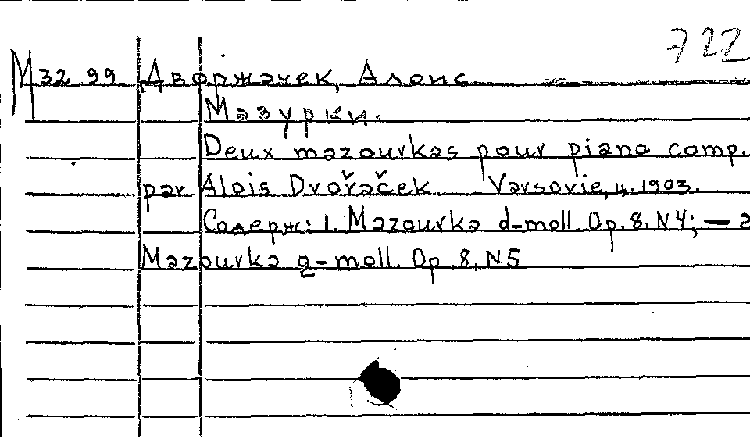 722
М 32 99 Дворжачек, Алоис
Мазурки.
Deux mazourkas pour piano comp.
par Alois Dvořáček. Varsovie, 4.1903.
Содерж: 1. Mazourka d-moll. Op. 8. N4; — 2
Mazourka g-moll. Op. 8. N5